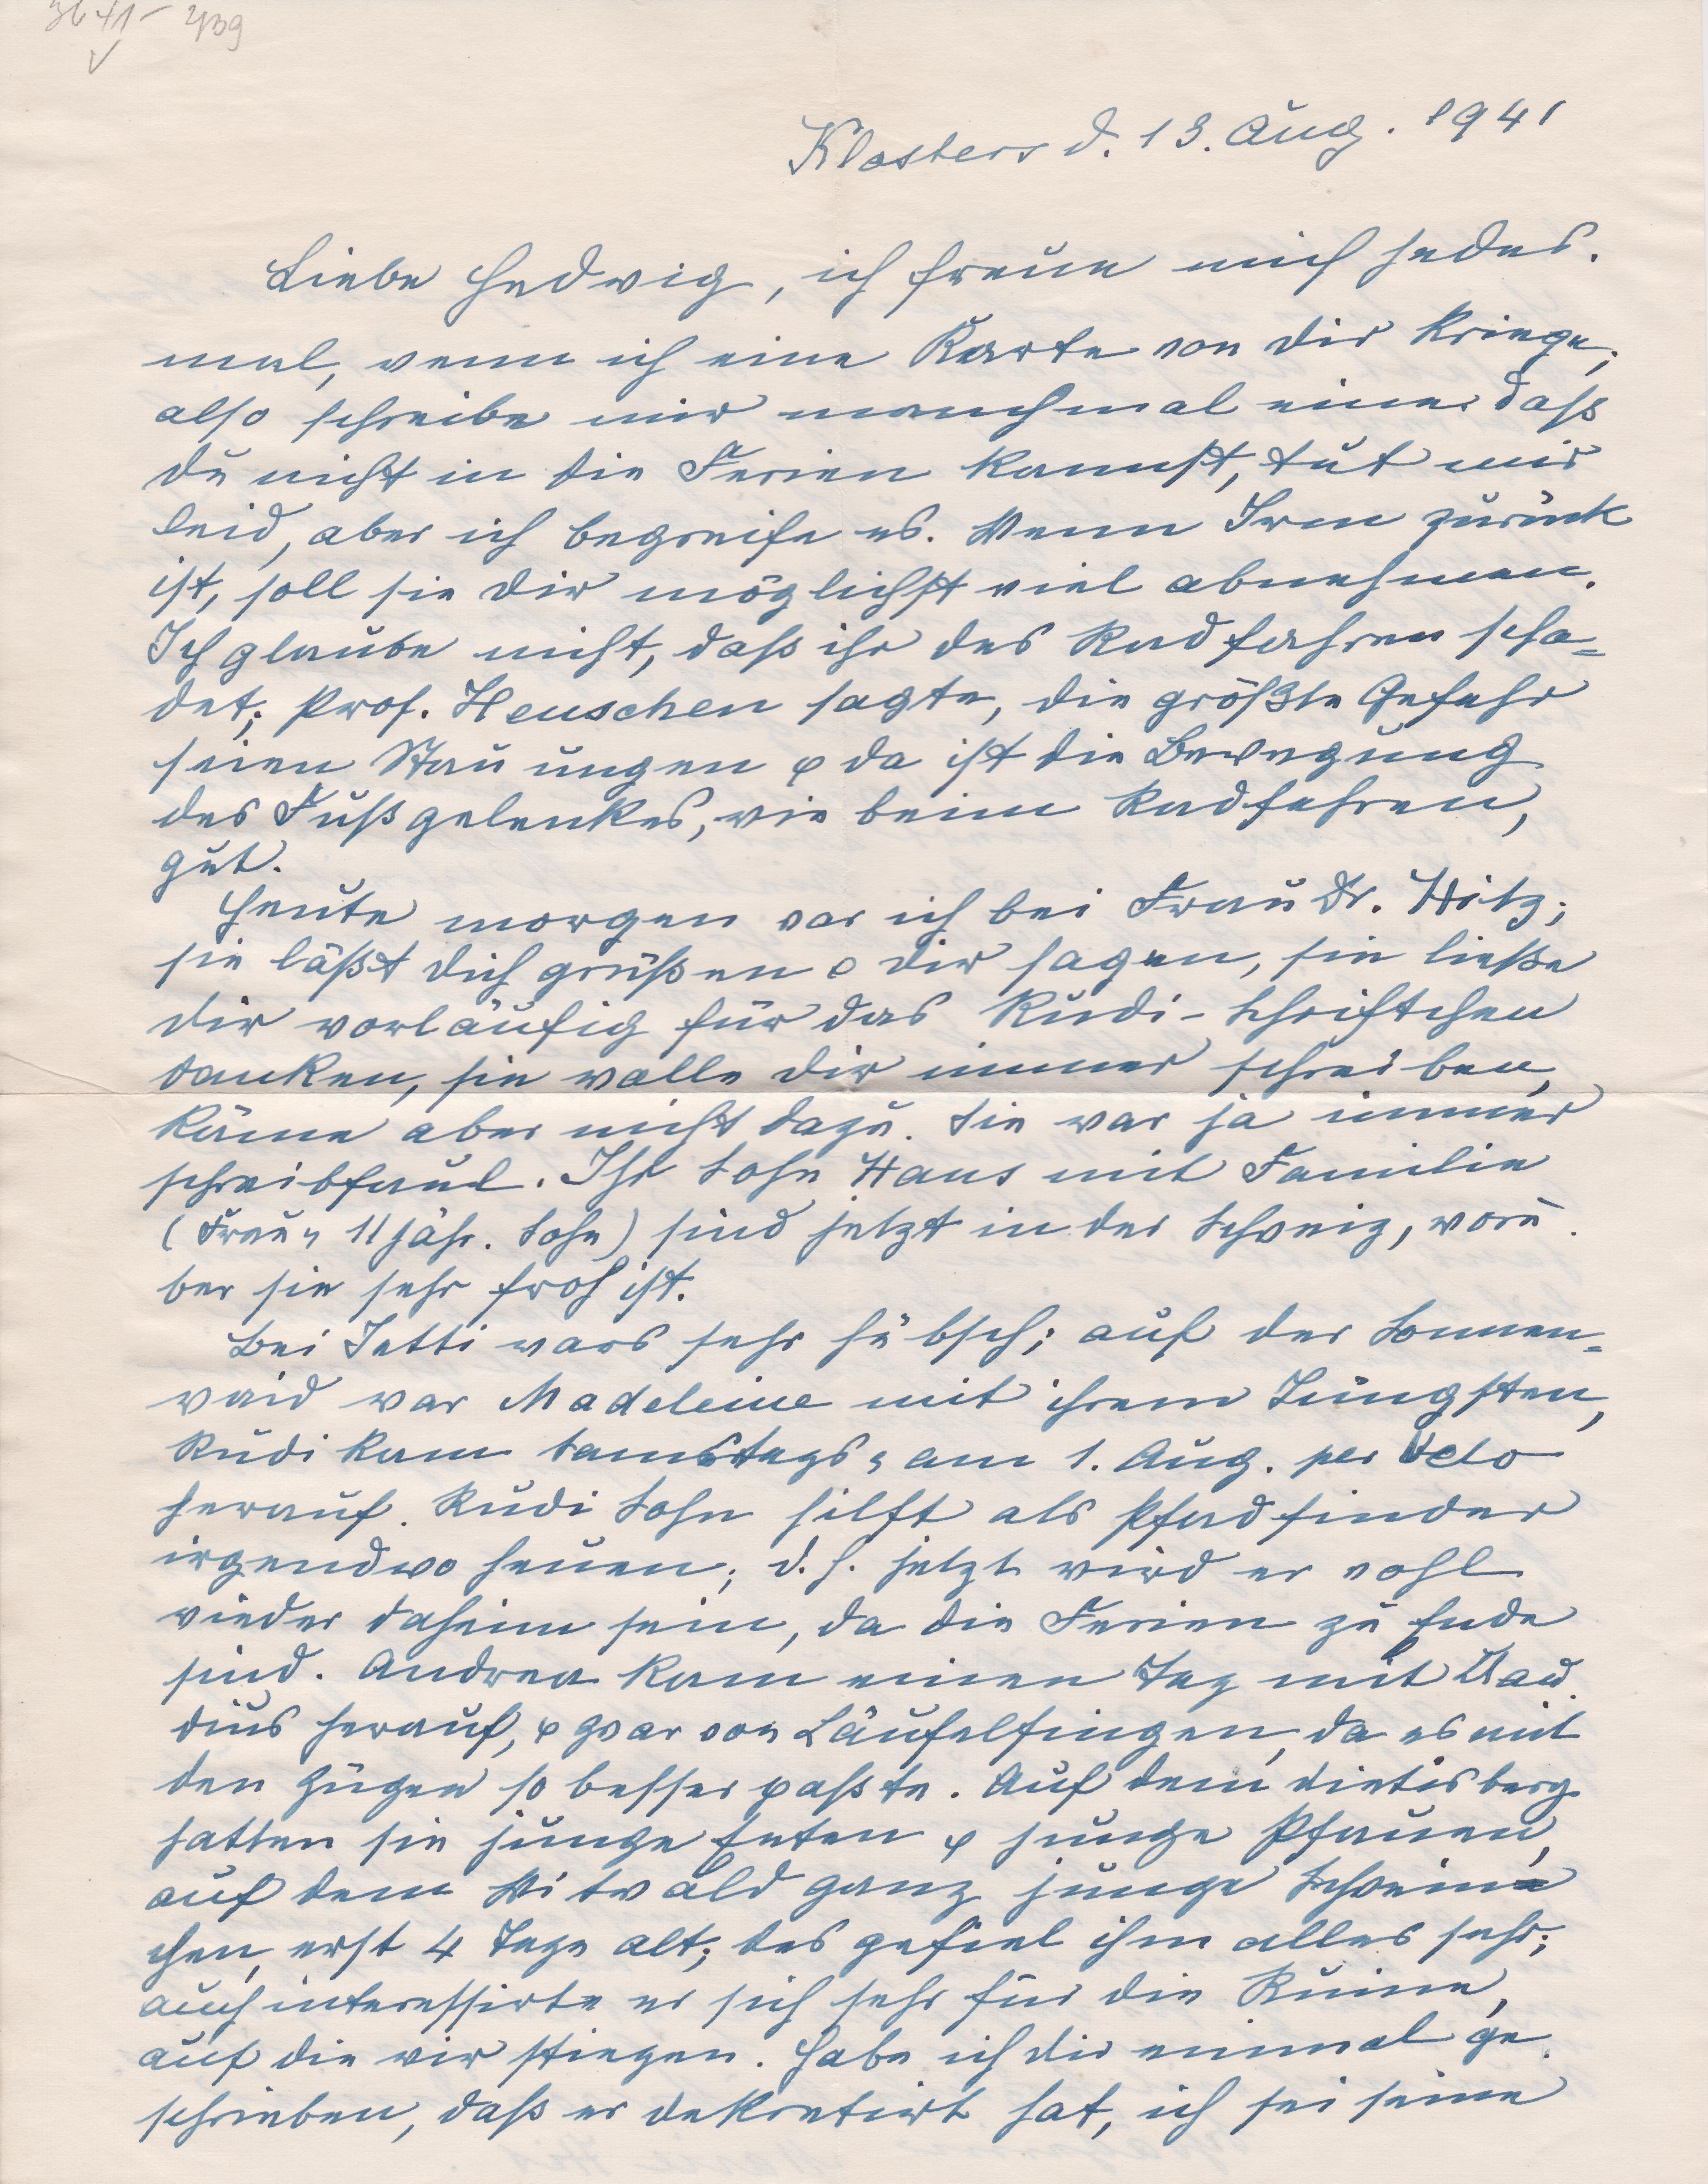 3641- 439
Klosters d. 13. Aug. 1941
Liebe Hedwig, ich freue mich jedes.
mal, wenn ich eine Karte von dir kriege,
also schreibe mir manchmal eine. Daß
du nicht in die Ferien kannst, tut mir
leid, aber ich begreife es. Wenn Irm zurück
ist, soll sie dir möglichst viel abnehmen.
Ich glaube nicht, daß ihr das Radfahren scha=
det; Prof. Henschen sagte, die größte Gefahr
seien Stauungen & da ist die Bewegung
des Fußgelenkes, wie beim Radfahren,
gut.
Heute morgen war ich bei Frau Dr. Hitz;
sie läßt dich grüßen & dir sagen, sie ließe
dir vorläufig für das Rudi-Schriftchen
danken, sie wolle dir immer schreiben,
käme aber nicht dazu. Sie war ja immer
schreibfaul. Ihr Sohn Hans mit Familie
(Frau & 11 jähr. Sohn) sind jetzt in der Schweiz, worü.
ber sie sehr froh ist.
Bei Jetti wars sehr hübsch; auf der Sonnen=
waid war Madeleine mit ihrem Jüngsten,
Rudi kam Samstags & am 1. Aug. per Velo
herauf. Rudi Sohn hilft als Pfadfinder
irgendwo heuen; d. h. jetzt wird er wohl
wieder daheim sein, da die Ferien zu Ende
sind. Andrea kam einen Tag mit Clau.
dius herauf, & zwar von Läufelfingen, da es mit
den Zügen so besser paßte. Auf dem Dietisberg
hatten sie junge Enten & junge Pfauen,
auf dem Witwald ganz junge Schwein
chen, erst 4 Tage alt; das gefiel ihm alles sehr;
auch interessirte er sich sehr für die Ruine,
auf die wir stiegen. Habe ich dir einmal ge.
schrieben, daß er dekretirt hat, ich sei seine